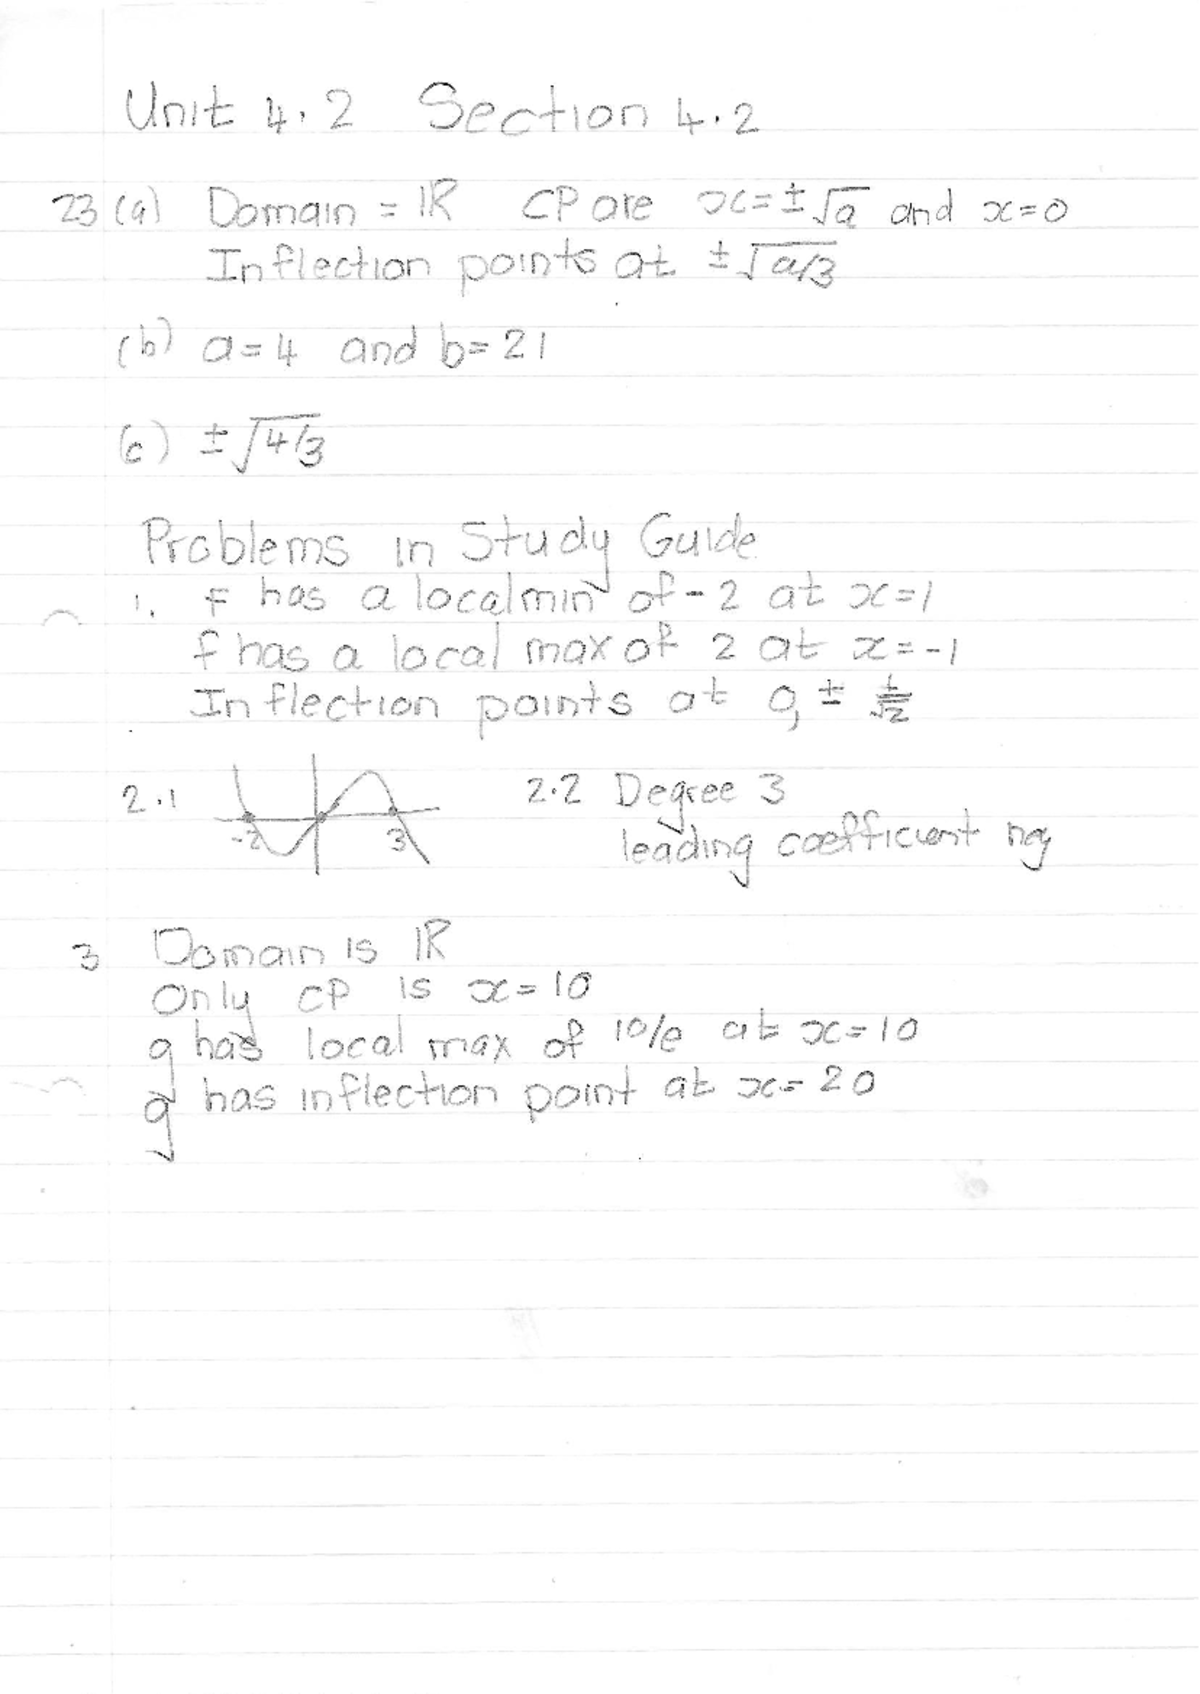 Unit 4.2 Section 4.2
23 (a) Domain = ℝ CP are x = ±√a and x=0
Inflection points at ±√a/3
(b) a=4 and b=21
(c) ±√4/3
Problems in Study Guide
1. f has a local min of -2 at x=1
f has a local max of 2 at x=-1
Inflection points at 0, ± 1/√2
2.1 -2 3 2.2 Degree 3
leading coefficient neg
3 Domain is ℝ
Only CP is x=10
g has local max of 10/e at x=10
g has inflection point at x=20